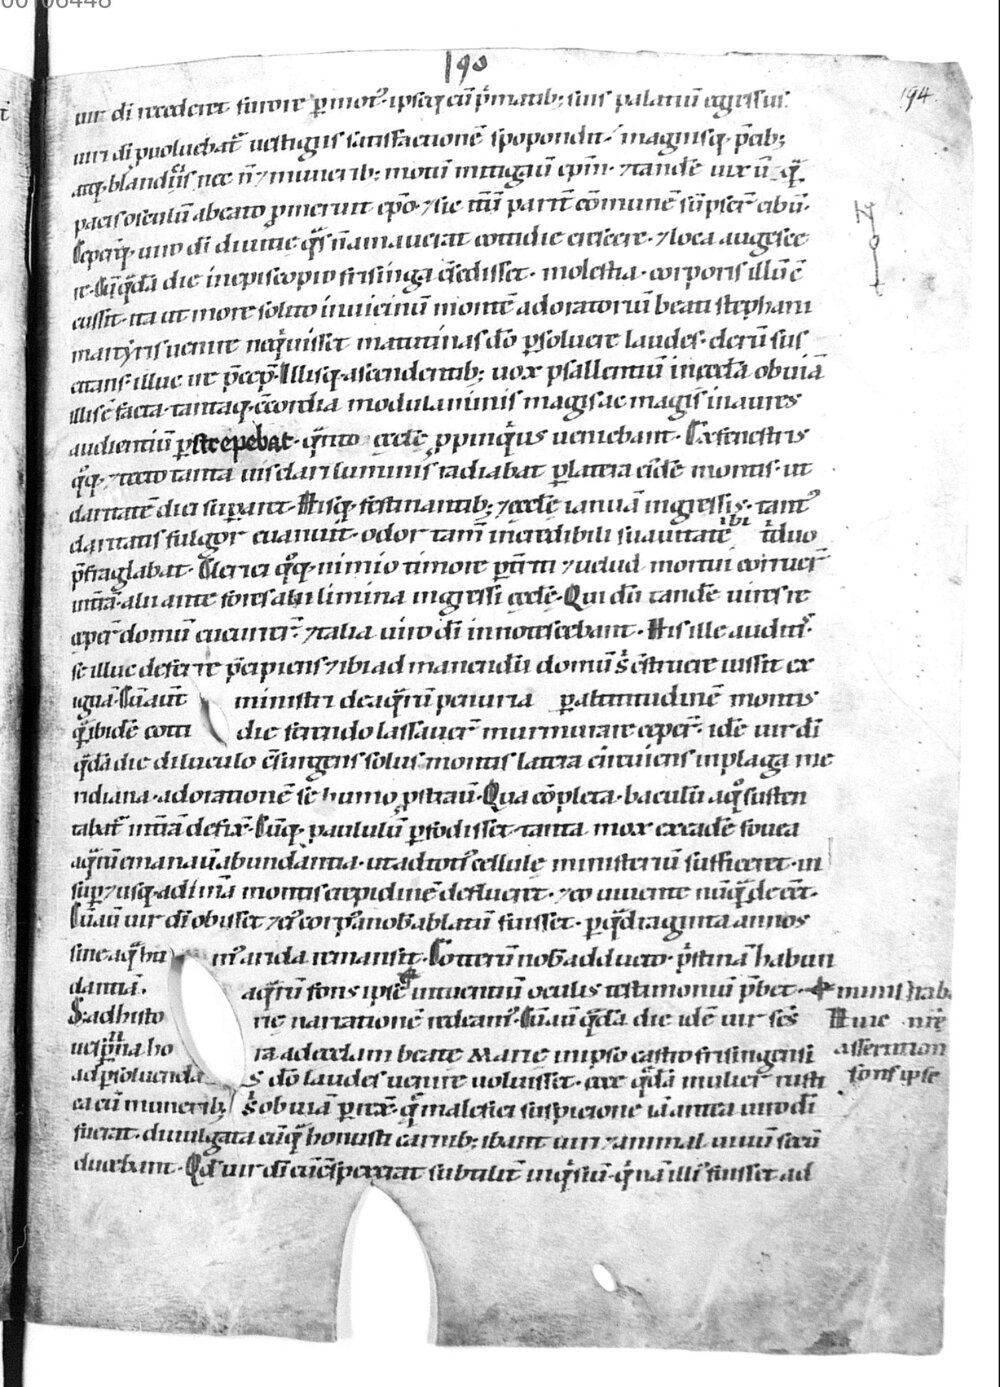 190
194
uir di recederet furore ꝑmot᷒. ipseq; cū p̄matib; suis palatiū egressus
uiri di ꝓuoluebat᷑ uestigiis satisfactionē spopondit. magnisq; p̄cib;
atq; blandiciis nec n̄ ⁊ munerib; motū mitigauit ep̄m. ⁊ tandē uix ū
pacis osculū a beato ꝓmeruit ep̄o. ⁊ sic
Cepitq; uiro di diuitie qͣs n̄ amauerat cottidie crescere. ⁊ loca augesce
re. Cū qͣdā die in episcopio frisinga c̄sedisset. molestia corporis illū c̄
cussit. ita ut more solito in uicinū montē ad oratoriū beati stephani
martyris uenire neqͥuisset matutinas dō ꝑsoluere laudes. clerū suū
citans. illuc ire p̄cep̄. Illisq; ascendentib; uox psallentiū in eccl̄a obuiā
illis ē facta. tantaq; c̄cordia modulaminis magis ac magis in aures
audientiū ꝑstrepebat. qͣnto eccl̄e ꝓpinqͥus ueniebant. Ex fenestris
qͦq; ⁊ tecto tanta uis clari luminis radiabat ꝑ latera eiᷤdē montis. ut
claritatē diei suꝑaret. Hisq; festinantib; ⁊ eccl̄e ianuā ingressis. tant᷒
claritatis fulgor euanuit. odor tam̄ incredibili suauitate ibi t͛duo
p̄fraglabat. Clerici qͦq; nimio timore ꝑt͛riti ⁊ uelud mortui corruer̄
int͛ra. alii ante fores alii limina ingressi eccl̄e. Qui dū tandē uires re
ceper̄ domū cucurrer̄. ⁊ talia uiro di innotescebant. His ille audit᷒.
se illuc deferre p̄cipiens ⁊ ibi ad manendū domū s͛ c̄struere iussit ex
iguā. Cū aut̄ ministri de aqͣrū penuria ꝑ altitudinē montis
qͣ ibidē cotti die ferendo lassauer̄ murmurare ceper̄. idē uir di
qͣdā die diluculo c̄surgens solus montis latera circuiens in plaga me
ridiana. ad orationē se humo ꝓstrauit. Qua c̄pleta. baculū a qͦ susten
tabat᷑ int͛rā defix̄. Cūq; paululū ꝑfodisset. tanta mox ex eadē fouea
aqͣrū emanauit abundantia. ut ad tot᷒ cellule ministeriū sufficeret. in
suꝑ ⁊ usq; ad imā montis crepidinē deflueret. ⁊ eo uiuente nūqͣ decēt.
Cū aū uir di obisset ⁊ ei᷒ corp᷒ a nob᷒ ablatū fuisset. ꝑ qͣdraginta annos
sine aqͣ hu m᷒ arida remansit. Ceterū nob᷒ adducto. p͛stinā habun
dantiā. aqͣrū fons ipse intuentiū oculis testimoniū p̄bet. ministrab.
S; ad histo rie narrationē redeam᷒. Cū aū qͣdā die idē uir scs̄ Huic nr̄e
uesꝑtina ho ra ad eccl̄am beate Marie in ipso castro frisingensi assertion
ad ꝑsoluenda s dō laudes uenire uoluisset. ecce qͣdā mulier rusti fons ipse
ca cū munerib; s͛ obuiā ꝑrex̄. qͣ malefici suspicione iā antea uiro di
fuerat. diuulgata cuiqͣ honusti carnib; ibant uiri ⁊ animal uiuū secū
ducebant. Qd̄ uir di cū c̄spexerat subtilit᷑ inqͥsiuit. qͣnā illi᷒ fuisset ad